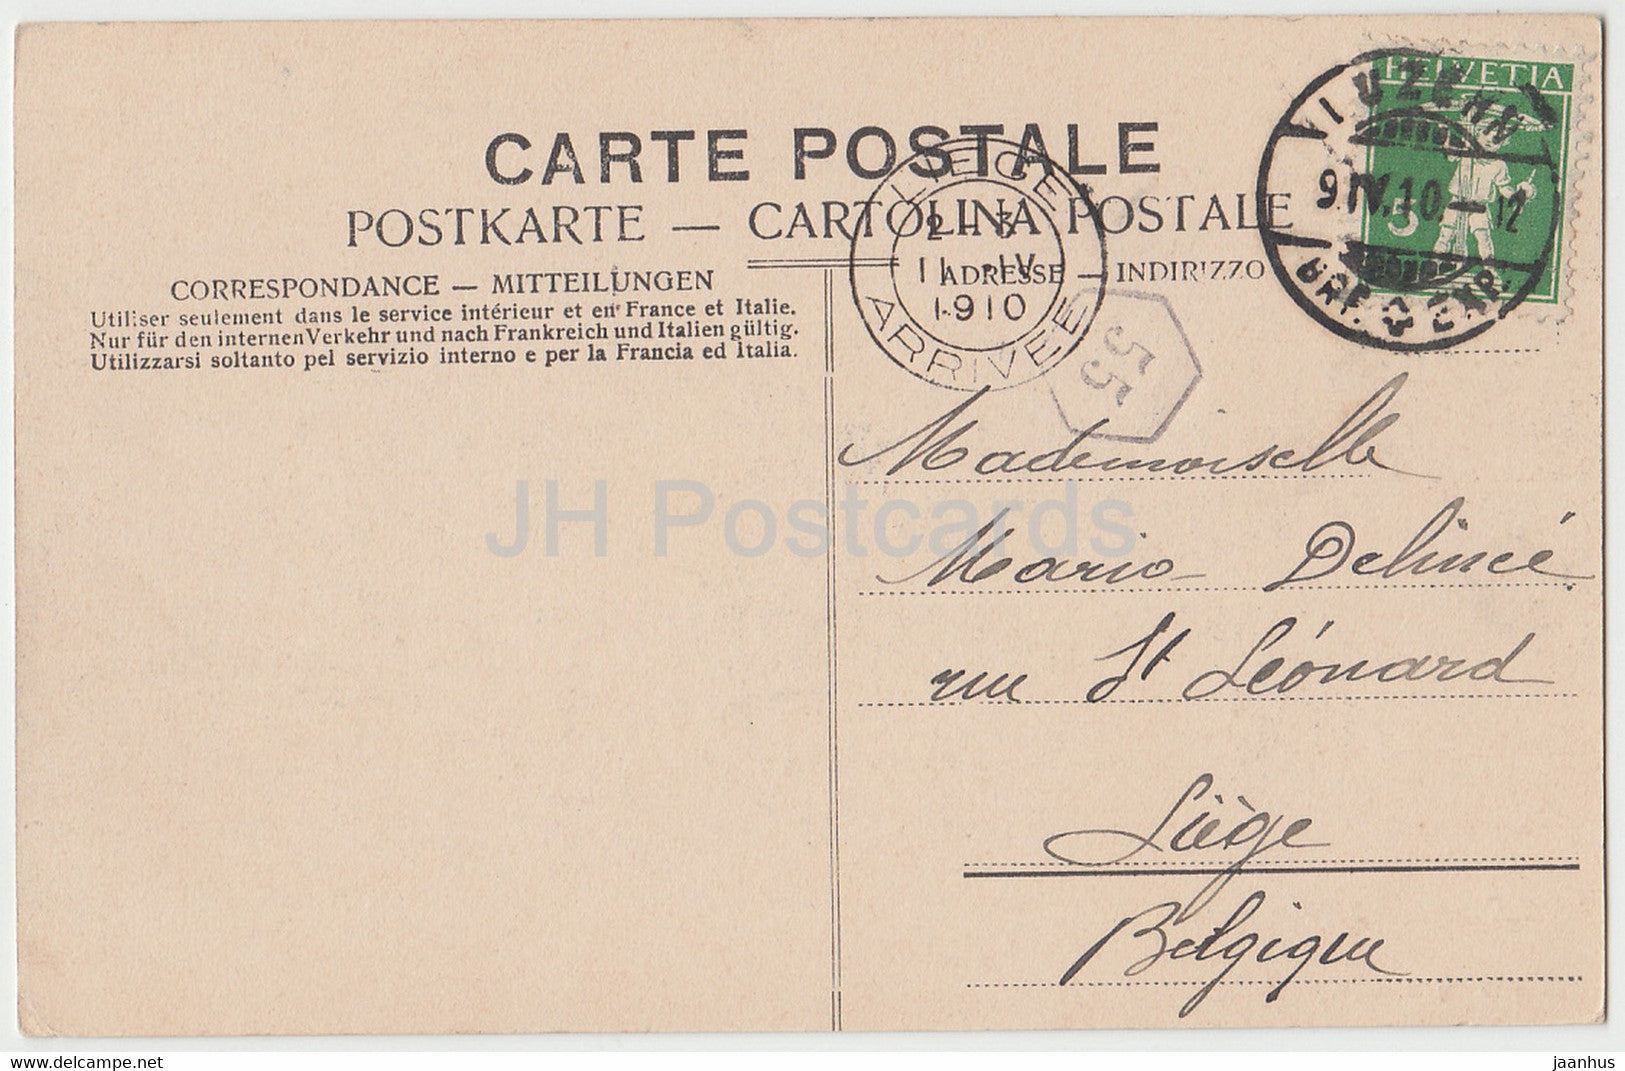 CARTE POSTALE
POSTKARTE — CARTOLINA POSTALE
CORRESPONDANCE — MITTEILUNGEN
Utiliser seulement dans le service intérieur et en France et Italie.
Nur für den internen Verkehr und nach Frankreich und Italien gültig.
Utilizzarsi soltanto pel servizio interno e per la Francia ed Italia.
ADRESSE — INDIRIZZO
LIEGE
2 - 3
11 - IV
1910
ARRIVEE
HELVETIA
5
LUZERN
9.IV.10.-12
BRF. EXP.
55
Mademoiselle
Maria Delincé
rue St Léonard
Liège
Belgique
JH Postcards
www.delcampe.net
jaanhus